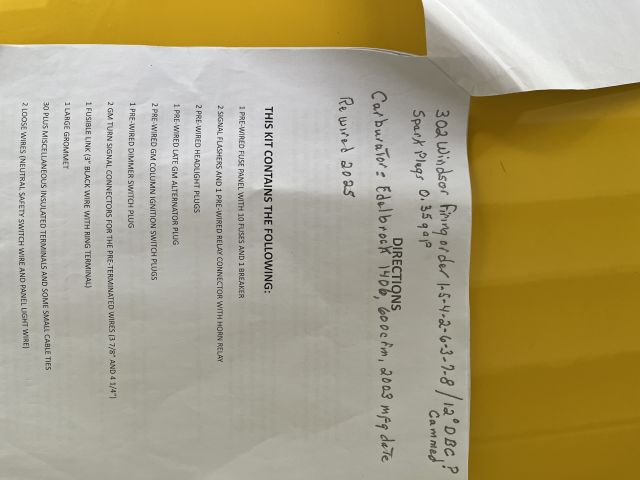 302 Windsor Firing order 1-5-4-2-6-3-7-8 / 12° DBC?
Cammed
Spark Plugs 0.35 gap
DIRECTIONS
Carburator = Edelbrock 1406, 600cfm, 2003 mfg date
Rewired 2025
THIS KIT CONTAINS THE FOLLOWING:
1 PRE-WIRED FUSE PANEL WITH 10 FUSES AND 1 BREAKER
2 SIGNAL FLASHERS AND 1 PRE-WIRED RELAY CONNECTOR WITH HORN RELAY
2 PRE-WIRED HEADLIGHT PLUGS
1 PRE-WIRED LATE GM ALTERNATOR PLUG
2 PRE-WIRED GM COLUMN IGNITION SWITCH PLUGS
1 PRE-WIRED DIMMER SWITCH PLUG
2 GM TURN SIGNAL CONNECTORS FOR THE PRE-TERMINATED WIRES (3 7/8" AND 4 1/4")
1 FUSIBLE LINK (3" BLACK WIRE WITH RING TERMINAL)
1 LARGE GROMMET
30 PLUS MISCELLANEOUS INSULATED TERMINALS AND SOME SMALL CABLE TIES
2 LOOSE WIRES (NEUTRAL SAFETY SWITCH WIRE AND PANEL LIGHT WIRE)